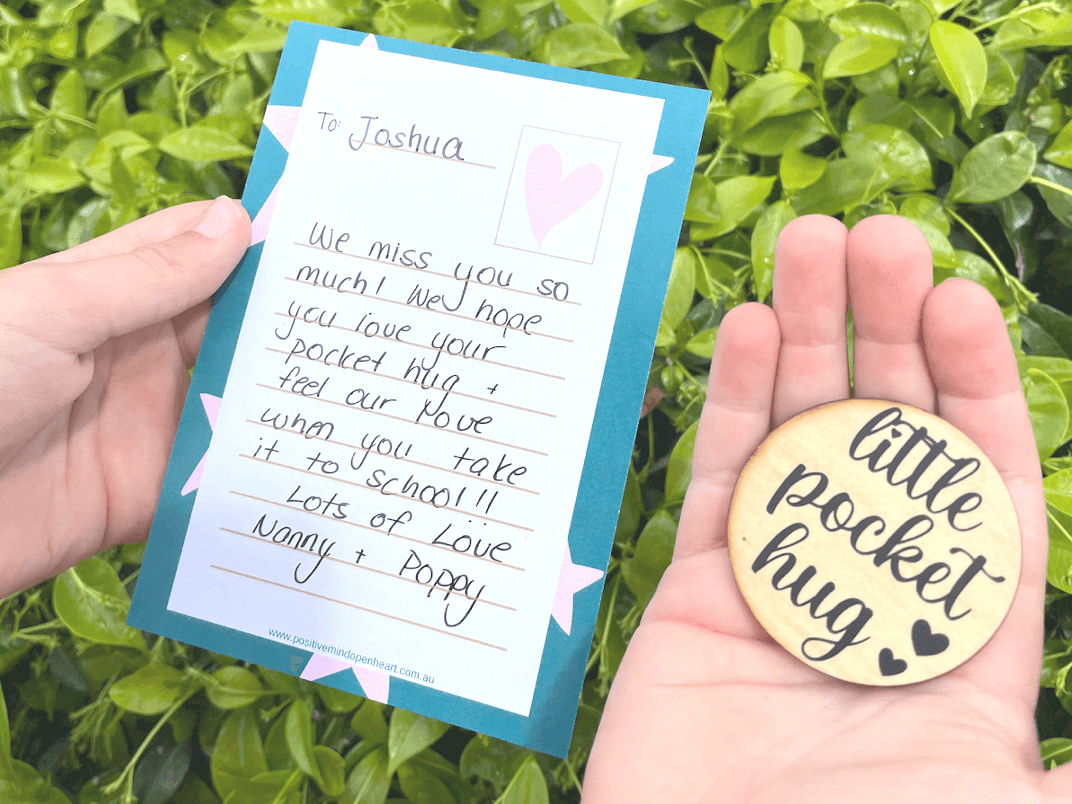 To: Joshua
We miss you so
much! We hope
you love your
pocket hug +
feel our love
when you take
it to school!!
Lots of Love
Nanny + Poppy
www.positivemindopenheart.com.au
little
pocket
hug